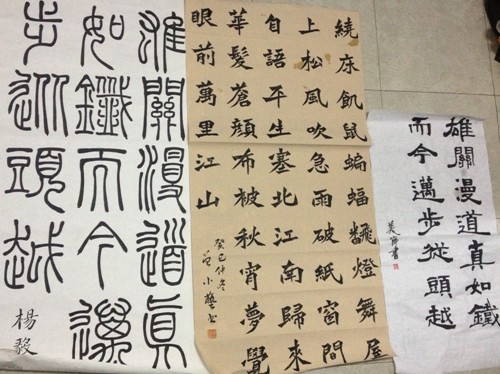 雄關漫道真
如鐵而今邁
步從頭越
楊毅
繞床飢鼠蝙蝠飜燈舞屋
上松風吹急雨破紙窗間
自語平生塞北江南歸來
華髮蒼顏布被秋宵夢覺
眼前萬里江山
癸巳仲冬
小艷書
雄關漫道真如鐵
而今邁步從頭越